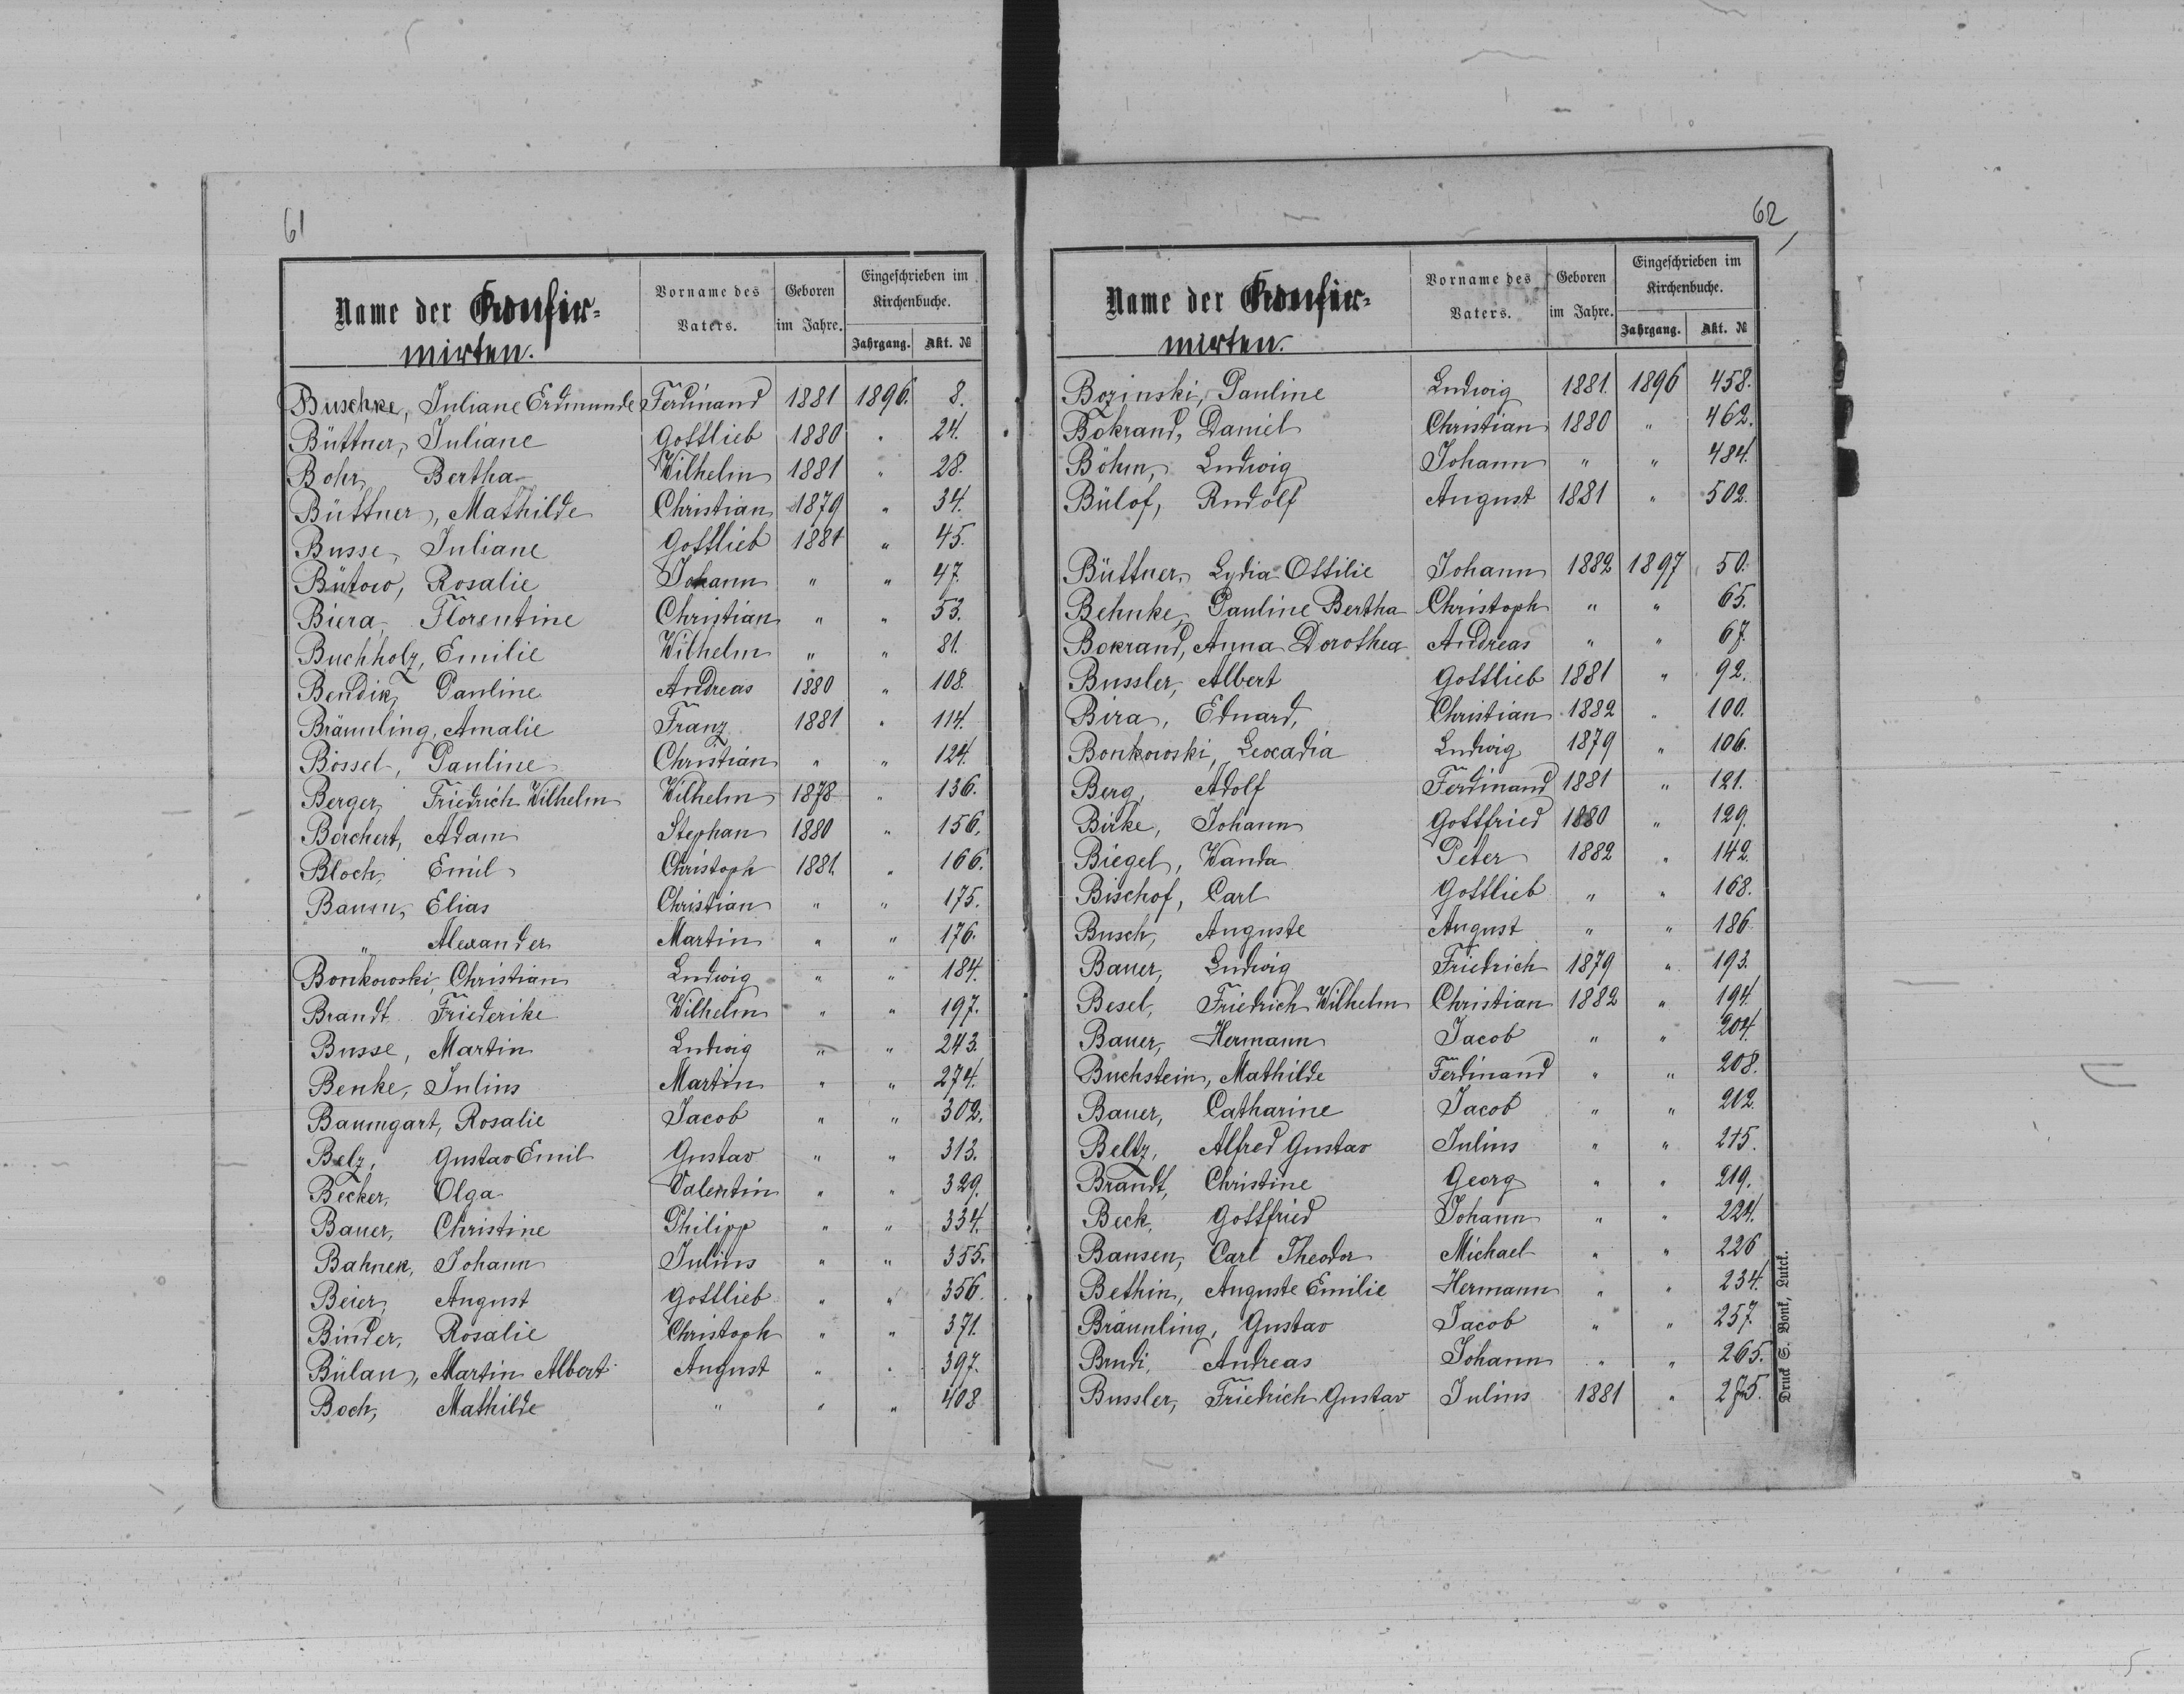 61
Name der Konfir-
mirten.
Vorname des Vaters.
Geboren im Jahre.
Eingeschrieben im Kirchenbuche.
Jahrgang. Akt. №
Buschke, Juliane Erdmunde Ferdinand 1881 1896. 8.
Büttner, Juliane Gottlieb 1880 " 24.
Bohr, Bertha Wilhelm 1881 " 28.
Büttner, Mathilde Christian 1879 " 34.
Busse, Juliane Gottlieb 1881 " 45.
Bütow, Rosalie Johann " " 47.
Biera, Florentine Christian " " 53.
Buchholz, Emilie Wilhelm " " 81.
Bendik, Pauline Andreas 1880 " 108.
Bräunling, Amalie Franz 1881 " 114.
Bössel, Pauline Christian " " 124.
Berger, Friedrich Wilhelm Wilhelm 1878 " 136.
Borchert, Adam Stephan 1880 " 156.
Bloch, Emil Christoph 1881. " 166.
Baum, Elias Christian " " 175.
" Alexander Martin " " 176.
Bonkowski, Christian Ludwig " " 184.
Brandt Friederike Wilhelm " " 197.
Busse, Martin Ludwig " " 243.
Benke, Julius Martin " " 274.
Baumgart, Rosalie Jacob " " 302.
Belz, Gustav Emil Gustav " " 313.
Becker, Olga Valentin " " 329.
Bauer, Christine Philipp " " 334.
Bahnek, Johann Julius " " 355.
Beier, August Gottlieb " " 356.
Binder, Rosalie Christoph " " 371.
Bülan, Martin Albert August " " 397.
Boch, Mathilde " " " 408
62
Name der Konfir-
mirten.
Vorname des Vaters.
Geboren im Jahre.
Eingeschrieben im Kirchenbuche.
Jahrgang. Akt. №
Bozinski, Pauline Ludwig 1881. 1896 458.
Bokrand, Daniel Christian 1880 " 462.
Böhm, Ludwig Johann " " 484.
Bülof, Rudolf August 1881 " 502.
Büttner, Lydia Ottilie Johann 1882 1897 50.
Behnke, Pauline Bertha Christoph " " 65.
Bokrand, Anna Dorothea Andreas " " 67.
Bussler, Albert Gottlieb 1881 " 92.
Bira, Eduard, Christian 1882 " 100.
Bonkowski, Leocadia Ludwig 1879 " 106.
Berg, Adolf Ferdinand 1881 " 121.
Birke, Johann Gottfried 1880 " 129.
Biegel, Wanda Peter 1882 " 142.
Bischof, Carl Gottlieb " " 168.
Busch, Auguste August " " 186.
Bauer, Ludwig Friedrich 1879 " 193.
Besel, Friedrich Wilhelm Christian 1882 " 194.
Bauer, Hermann Jacob " " 204.
Buchstein, Mathilde Ferdinand " " 208.
Bauer, Catharine Jacob " " 212.
Beltz, Alfred Gustav Julius " " 215.
Brandt, Christine Georg " " 219.
Beck, Gottfried Johann " " 224.
Bansen, Carl Theodor Michael " " 226
Bethin, Auguste Emilie Hermann " " 234.
Bräunling, Gustav Jacob " " 257.
Brudi, Andreas Johann " " 265.
Bussler, Friedrich Gustav Julius 1881 " 275.
Druck E. Bont, Lutzk.